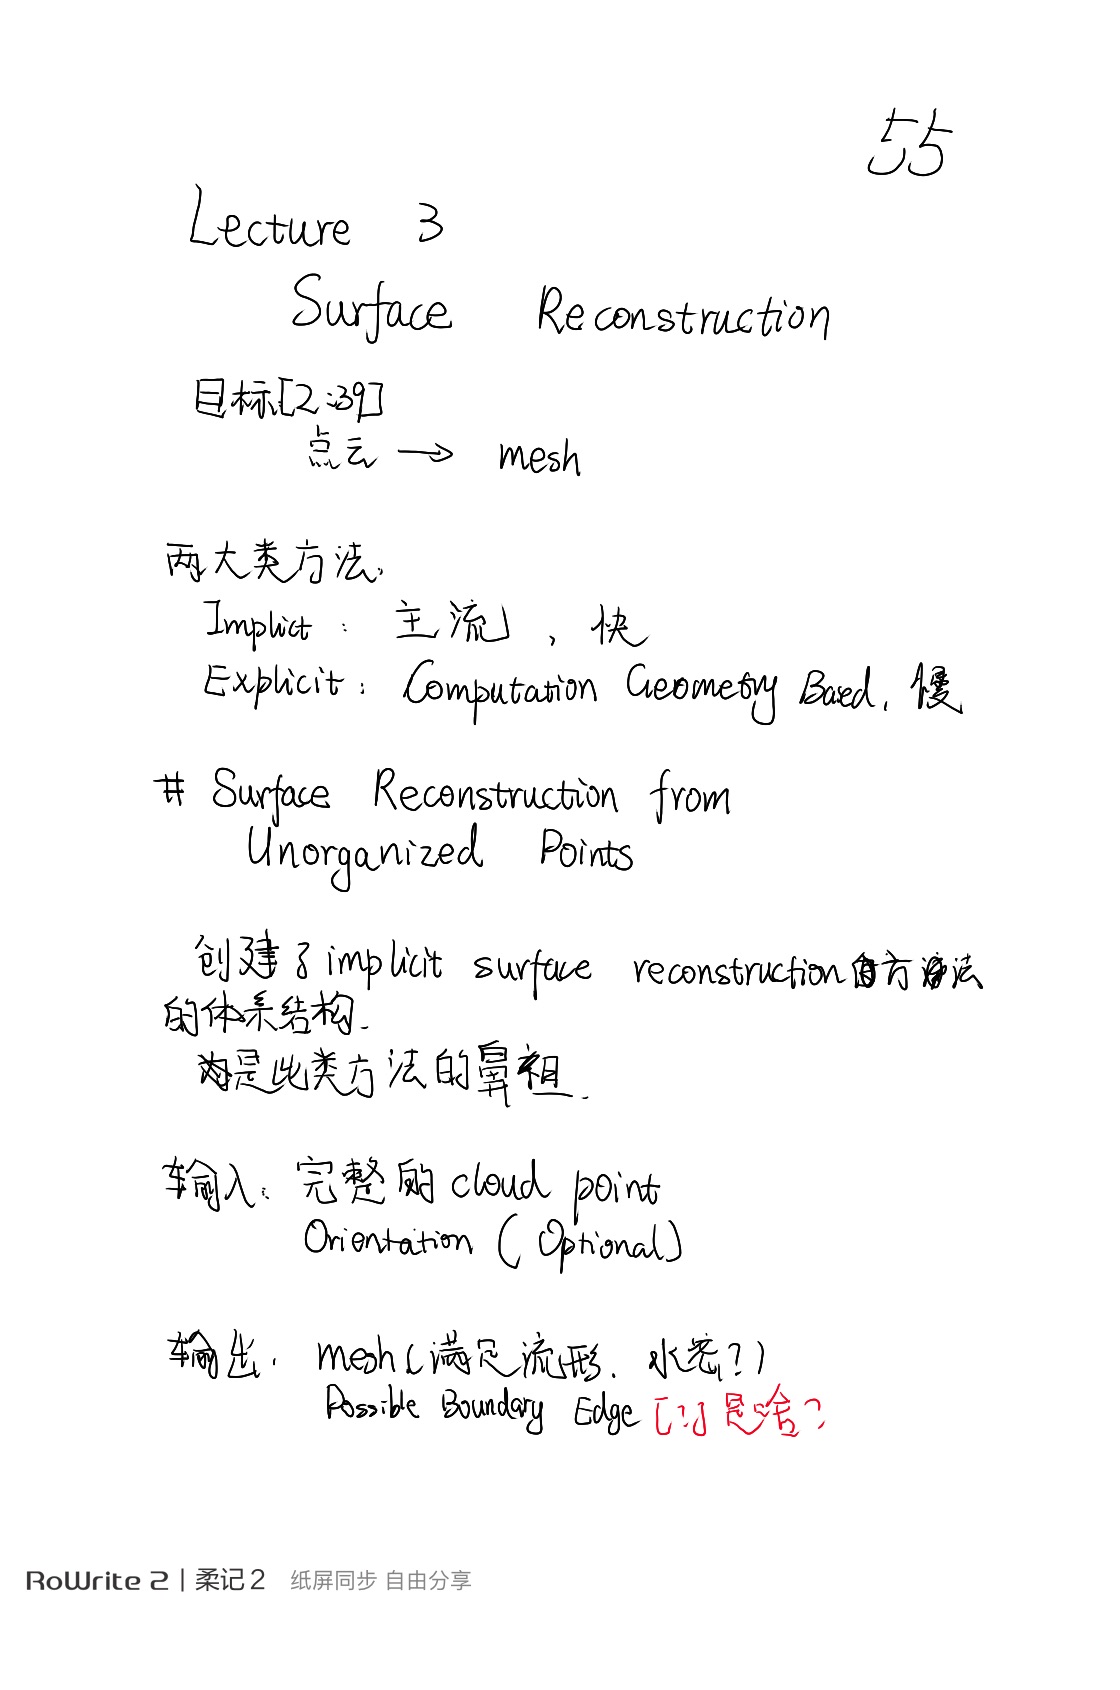 55
Lecture 3
Surface Reconstruction
目标[2:39]
点云 → mesh
两大类方法.
Implict : 主流 , 快
Explicit : Computation Geometry Based, 慢
# Surface Reconstruction from
Unorganized Points
创建了implicit surface reconstruction方法
的体系结构.
是此类方法的鼻祖.
输入: 完整的 cloud point
Orientation ( Optional)
输出. mesh(满足流形. 水密?)
Possible Boundary Edge [?] 是啥?
RoWrite 2 | 柔记2 纸屏同步 自由分享